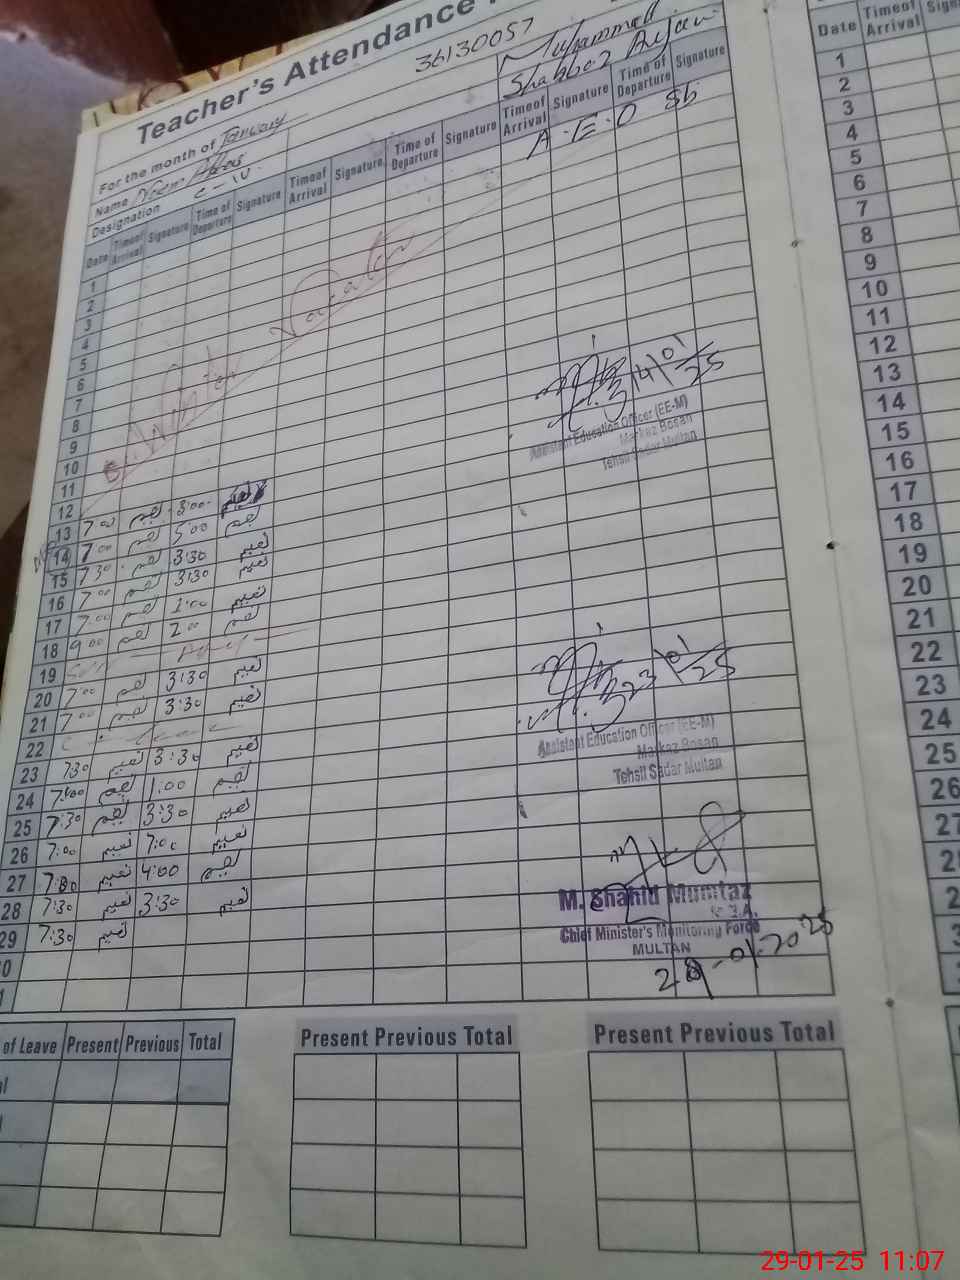 Teacher's Attendance
36130057
Muhammad
Shahbaz Anjum
A.E.O Sb
For the month of January
Name Naeem Abbas
Designation C-IV
Date Timeof Arrival Signature Time of Departure Signature Timeof Arrival Signature Time of Departure Signature Timeof Arrival Signature Time of Departure Signature
1
2
3
4
5
6
7
8
9
10
11
12
Winter Vacation
13 7:00 نعیم 3:00 نعیم
14 7:00 نعیم 5:00 نعیم
15 7:30 نعیم 3:30 نعیم
16 7:00 نعیم 3:30 نعیم
17 7:00 نعیم 1:00 نعیم
18 9:00 نعیم 2:00 نعیم
19
20 7:00 نعیم 3:30 نعیم
21 7:00 نعیم 3:30 نعیم
22
23 7:30 نعیم 3:30 نعیم
24 7:00 نعیم 1:00 نعیم
25 7:30 نعیم 3:30 نعیم
26 7:00 نعیم 7:00 نعیم
27 7:00 نعیم 4:00 نعیم
28 7:30 نعیم 3:30 نعیم
29 7:30 نعیم
0
1
14/01/25
Assistant Education Officer (EE-M)
Markaz Bosan
Tehsil Sadar Multan
23/01/25
Assistant Education Officer (EE-M)
Markaz Bosan
Tehsil Sadar Multan
M. Shahid Mumtaz
Chief Minister's Monitoring Force
MULTAN
28-01-2025
of Leave Present Previous Total
Present Previous Total
Present Previous Total
Date Timeof Arrival
1
2
3
4
5
6
7
8
9
10
11
12
13
14
15
16
17
18
19
20
21
22
23
24
25
26
27
29-01-25 11:07